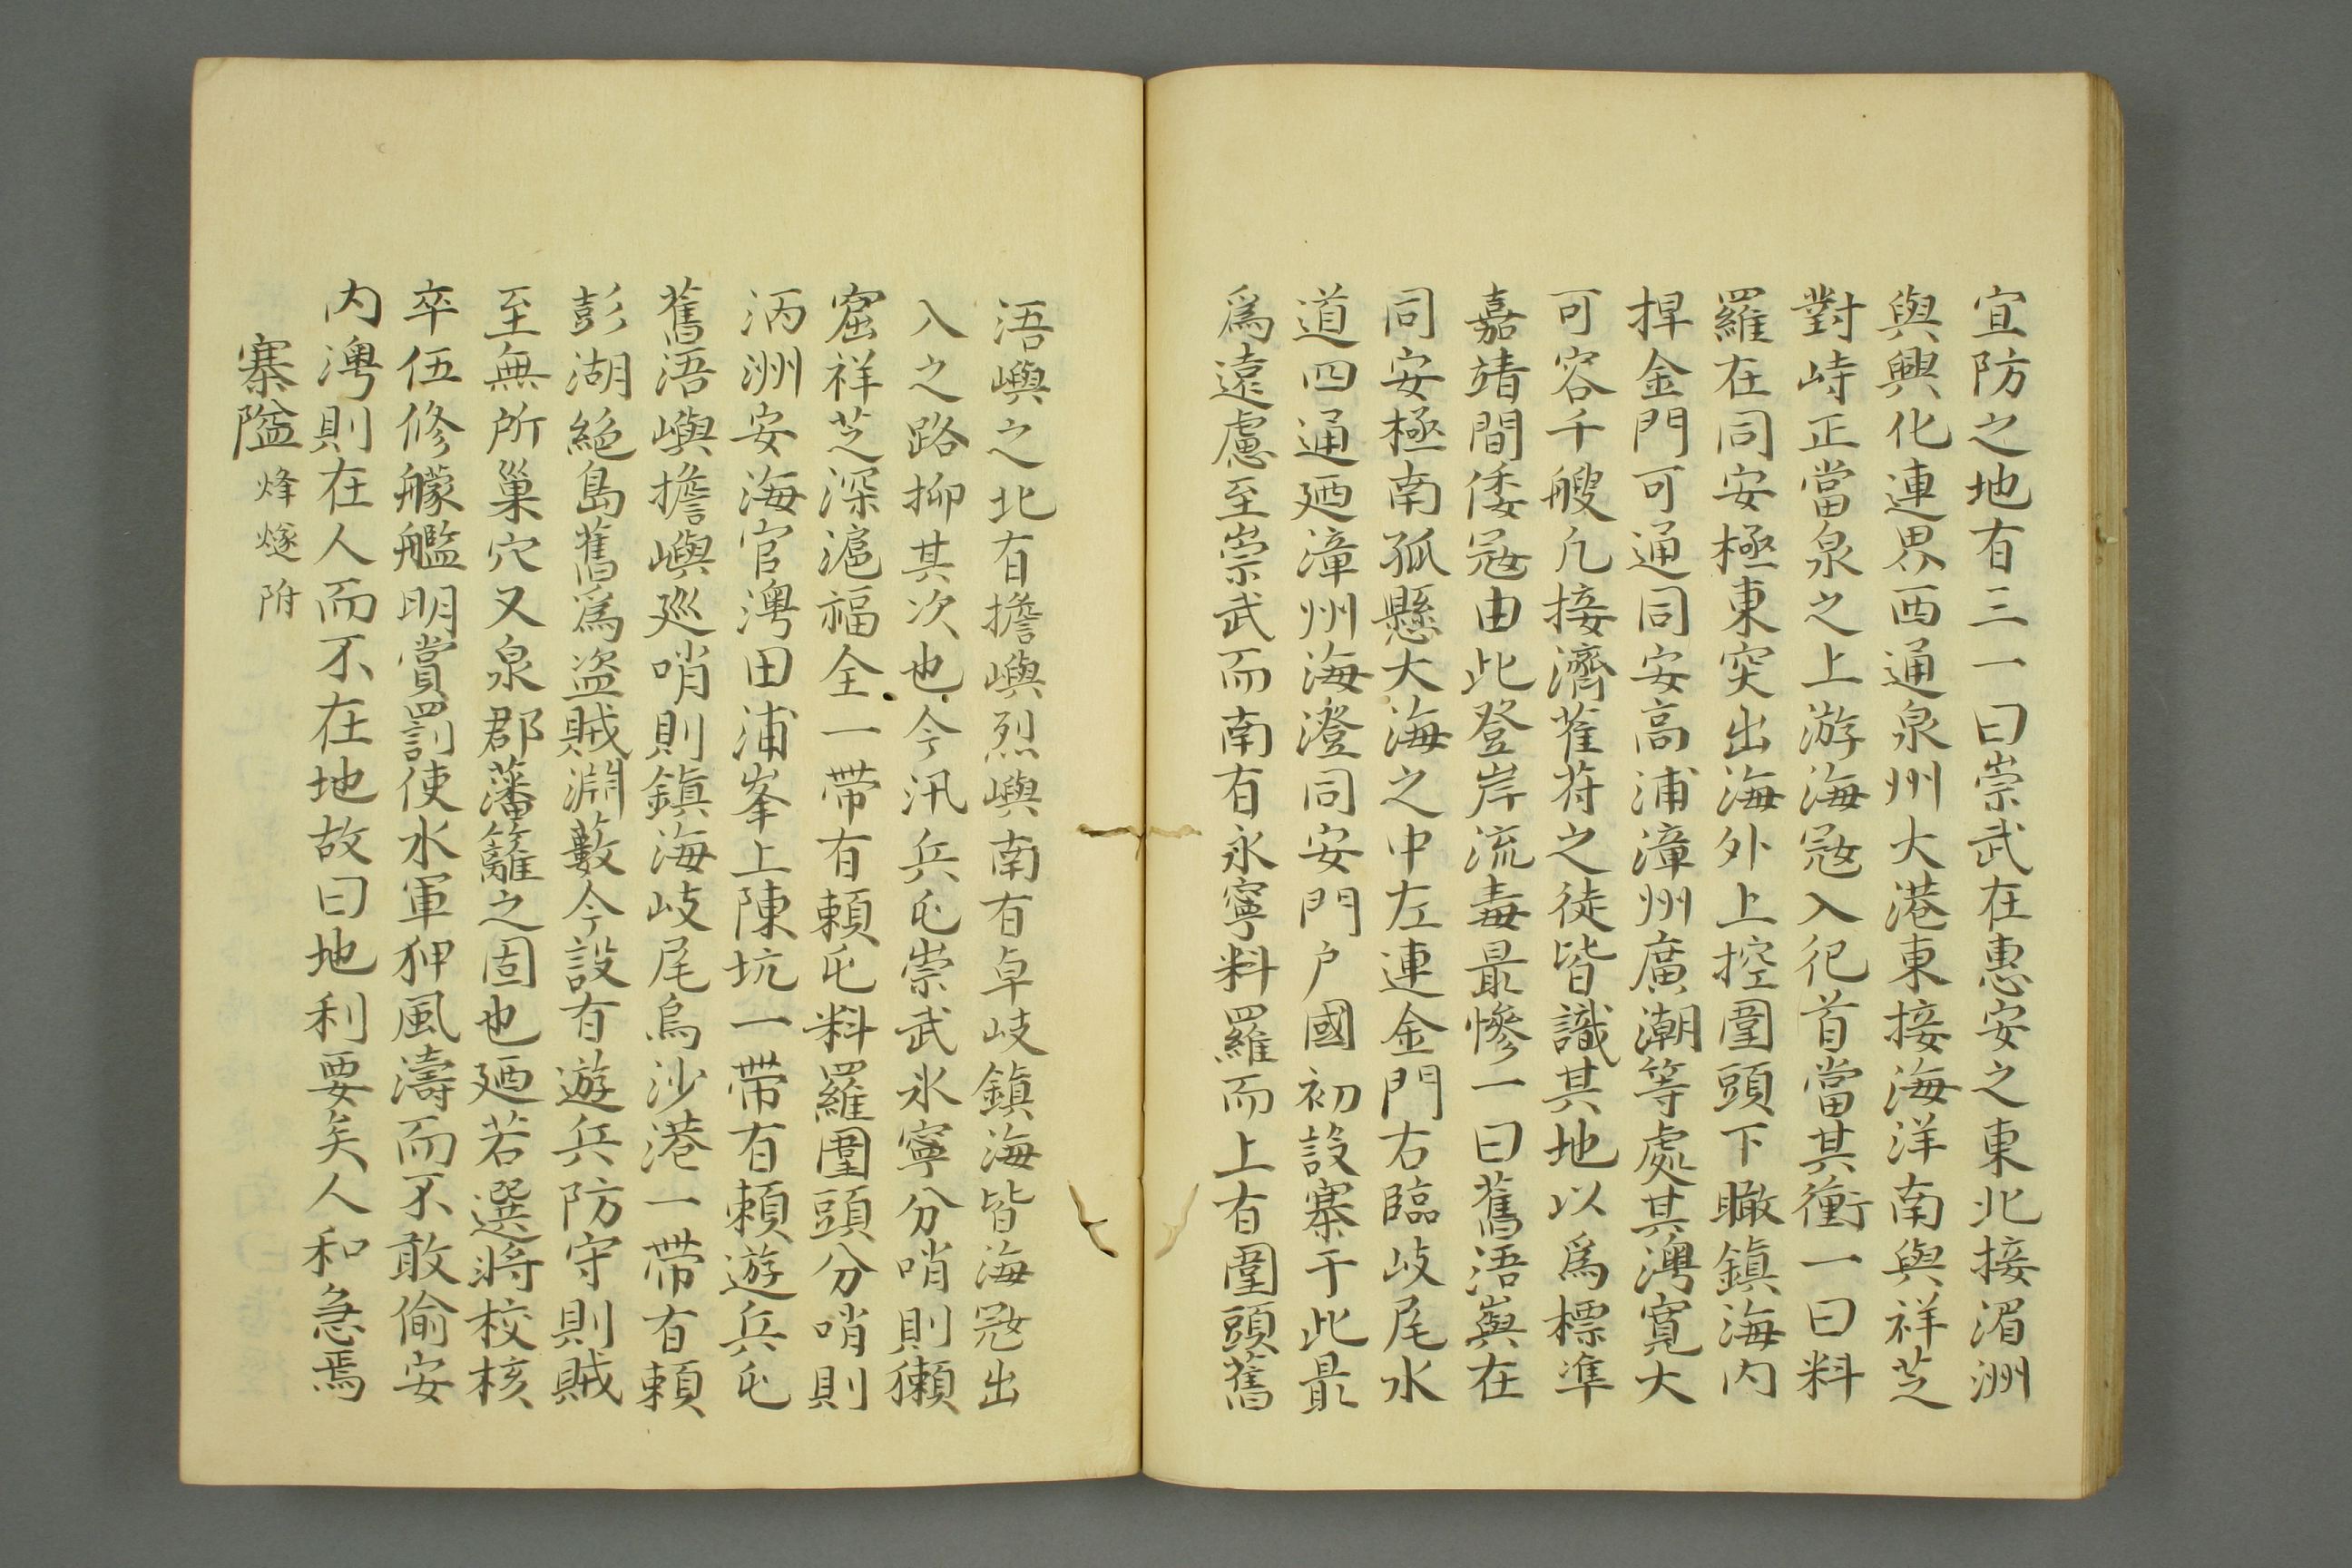 宜防之地有三一曰崇武在惠安之東北接湄洲
與興化連界西通泉州大港東接海洋南與祥芝
對峙正當泉之上游海寇入犯首當其衝一曰料
羅在同安極東突出海外上控圍頭下瞰鎮海內
捍金門可通同安高浦漳州廣潮等處其澚寬大
可容千艘凡接濟萑苻之徒皆識其地以爲標準
嘉靖間倭寇由此登岸流毒最慘一曰舊浯嶼在
同安極南孤懸大海之中左連金門右臨岐尾水
道四通廼漳州海澄同安門户國初設寨于此最
爲遠慮至崇武而南有永寧料羅而上有圍頭舊
浯嶼之北有擔嶼烈嶼南有卓岐鎮海皆海寇出
入之路抑其次也今汛兵屯崇武永寧分哨則獺
窟祥芝深滬福全一帶有賴屯料羅圍頭分哨則
浯洲安海官澚田浦峯上陳坑一帶有賴遊兵屯
舊浯嶼擔嶼巡哨則鎮海岐尾烏沙港一帶有賴
彭湖絕島舊爲盜賊淵藪今設有遊兵防守則賊
至無所巢穴又泉郡藩籬之固也廼若選將校核
卒伍修艨艦明賞罰使水軍狎風濤而不敢偷安
內澚則在人而不在地故曰地利要矣人和急焉
寨隘烽燧附